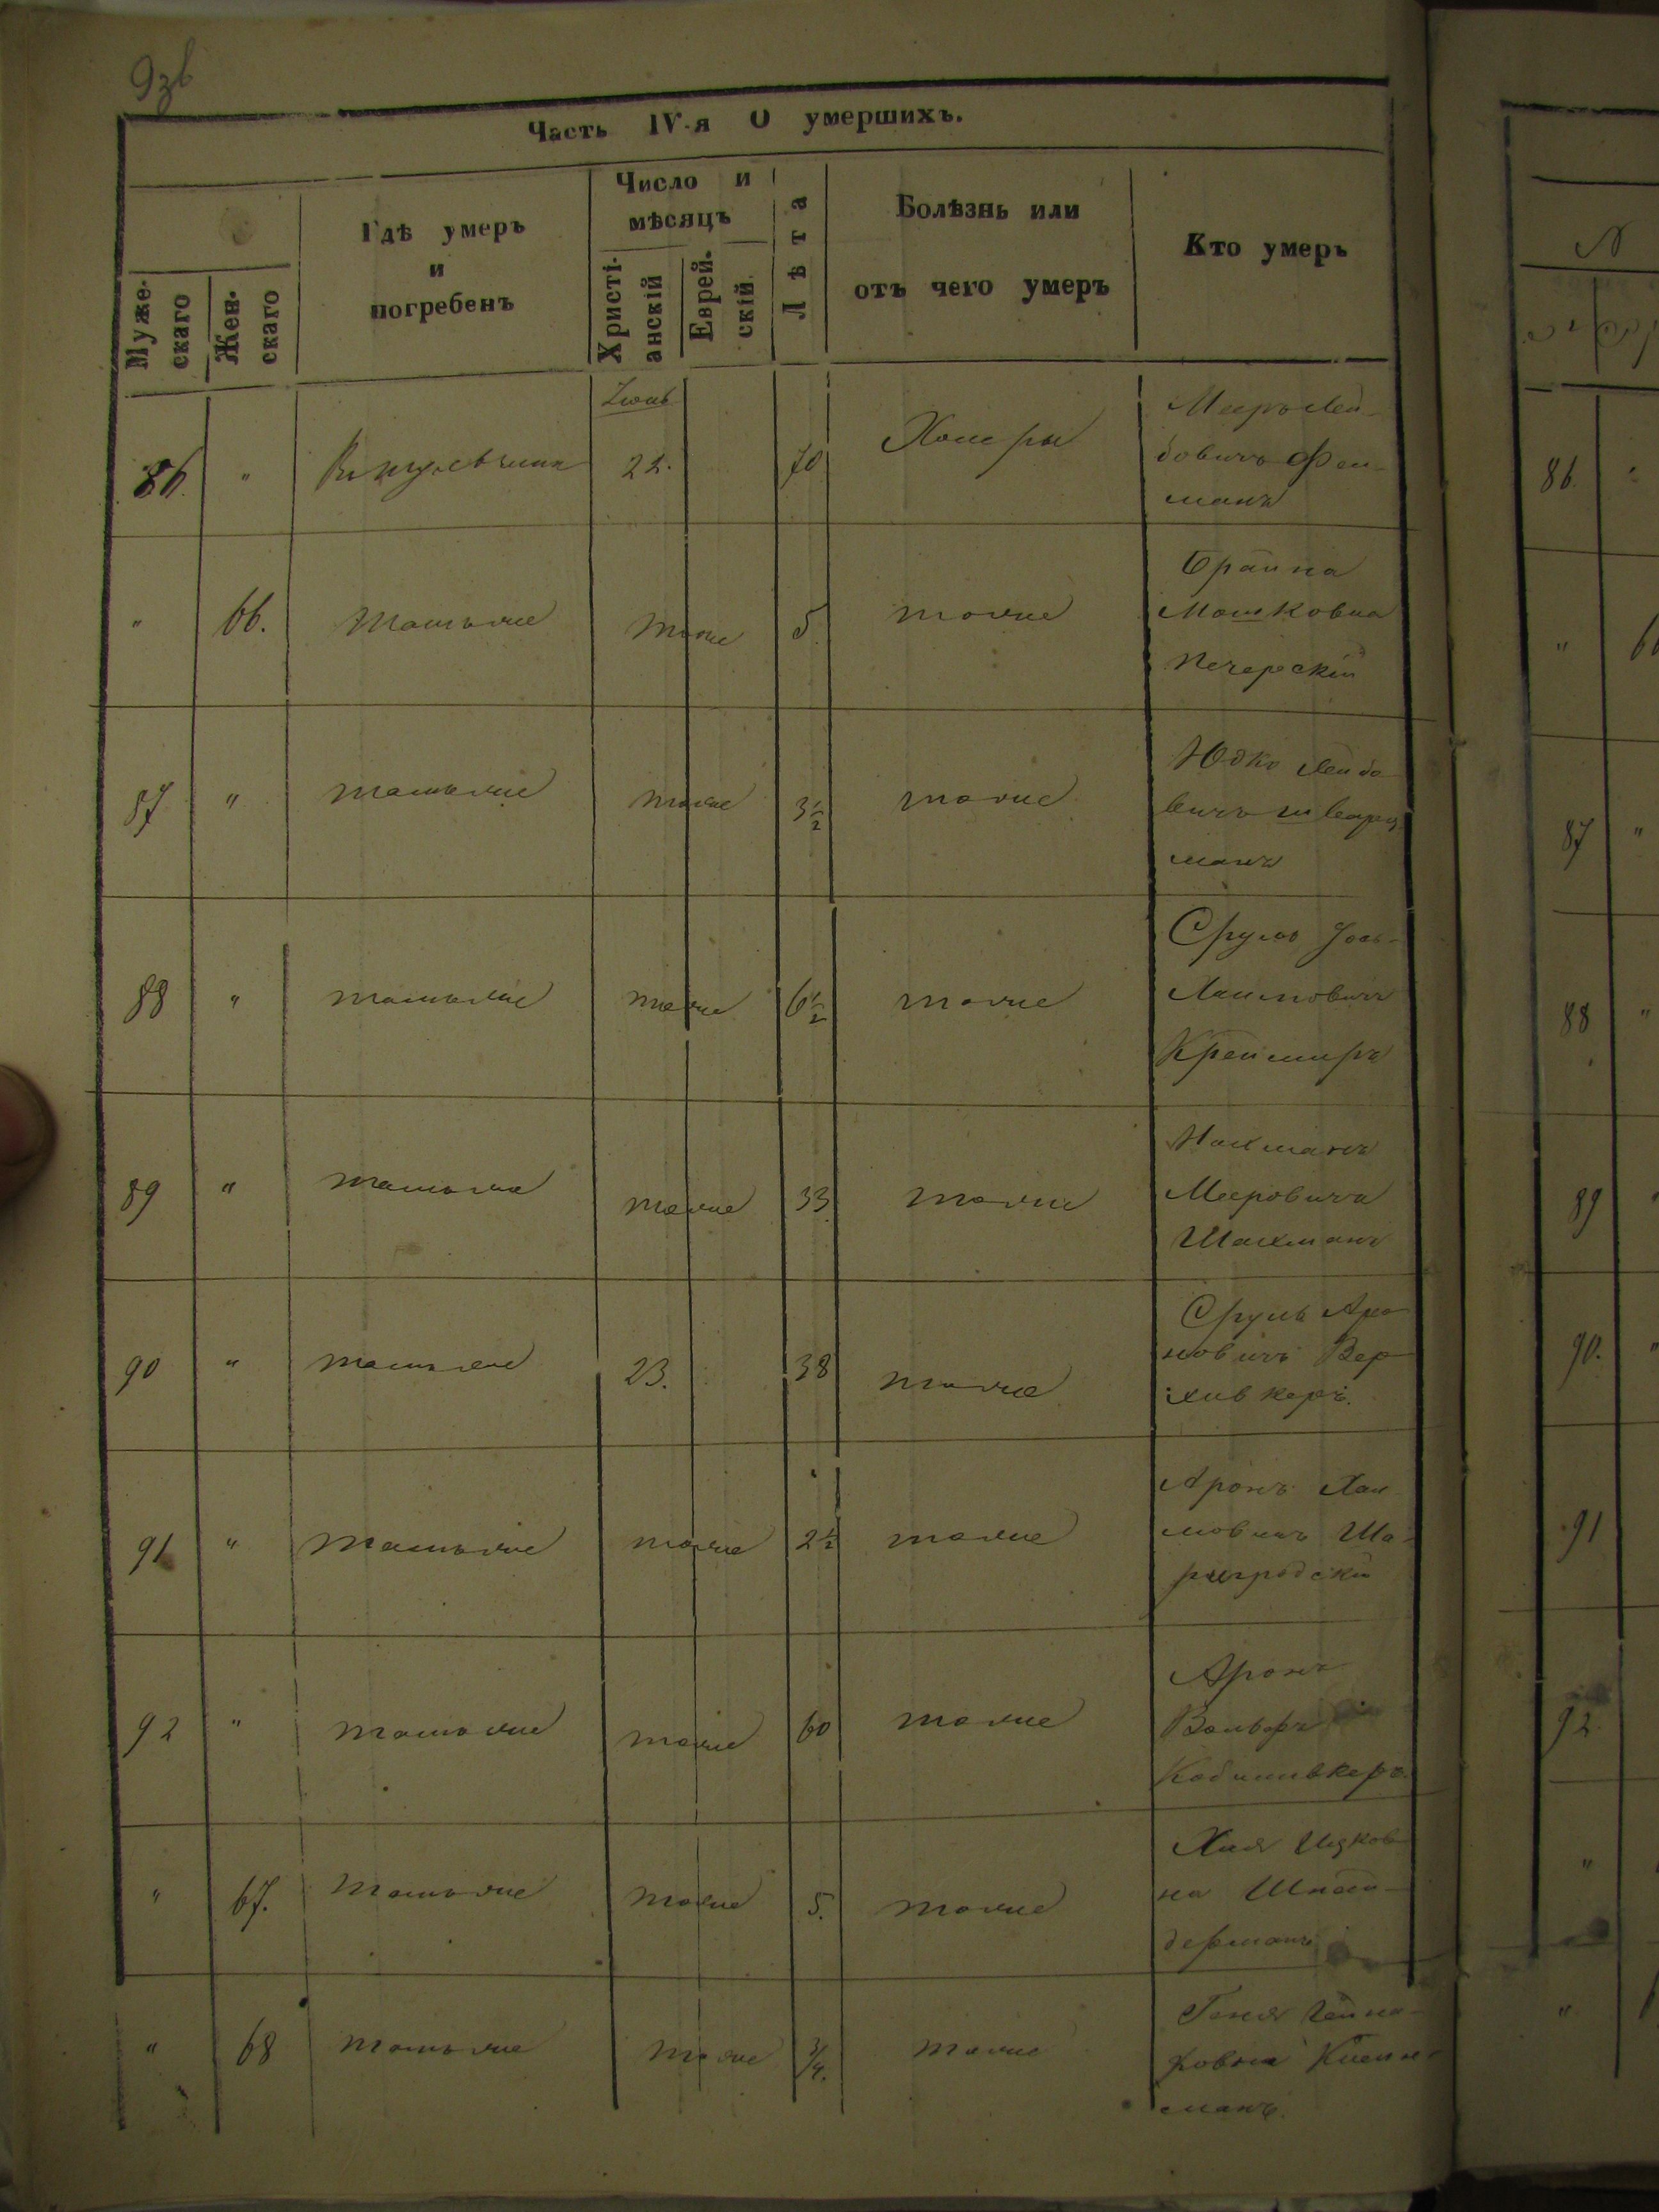 93б
Часть IV-я О умершихъ.
Муже-
скаго
Жен-
скаго
Гдѣ умеръ
и
погребенъ
Число и
мѣсяцъ
Христі-
анскій
Еврей-
скій
Лѣта
Болѣзнь или
отъ чего умеръ
Кто умеръ
86. " 22. 70 Холеры Мееръ Лей-
бовичъ Фей-
манъ
" 66. тамъ же тоже 5 тоже Брайна
Мошковна
Печерскій
87 " тамъ же тоже 3½ тоже Юдко Лейбо
вичъ Шварц
манъ
88 " тамъ же тоже 6½ тоже Сруль
Хаимовичъ
89 " тамъ же тоже 33. тоже Нахманъ
Мееровичъ
Шахманъ
90 " тамъ же 23. 38 тоже Сруль Аро
новичъ Вер
хивкеръ.
91 " тамъ же тоже 2½ тоже Аронъ Хаи
мовичъ Ша-
ригродскій
92 " тамъ же тоже 60 тоже Аронъ
" 67. тамъ же тоже 5. тоже Хая Ицков
на
" 68 тамъ же тоже ¾. тоже Геня
манъ.
86.
"
87 "
88 "
89
90.
91
92.
"
"